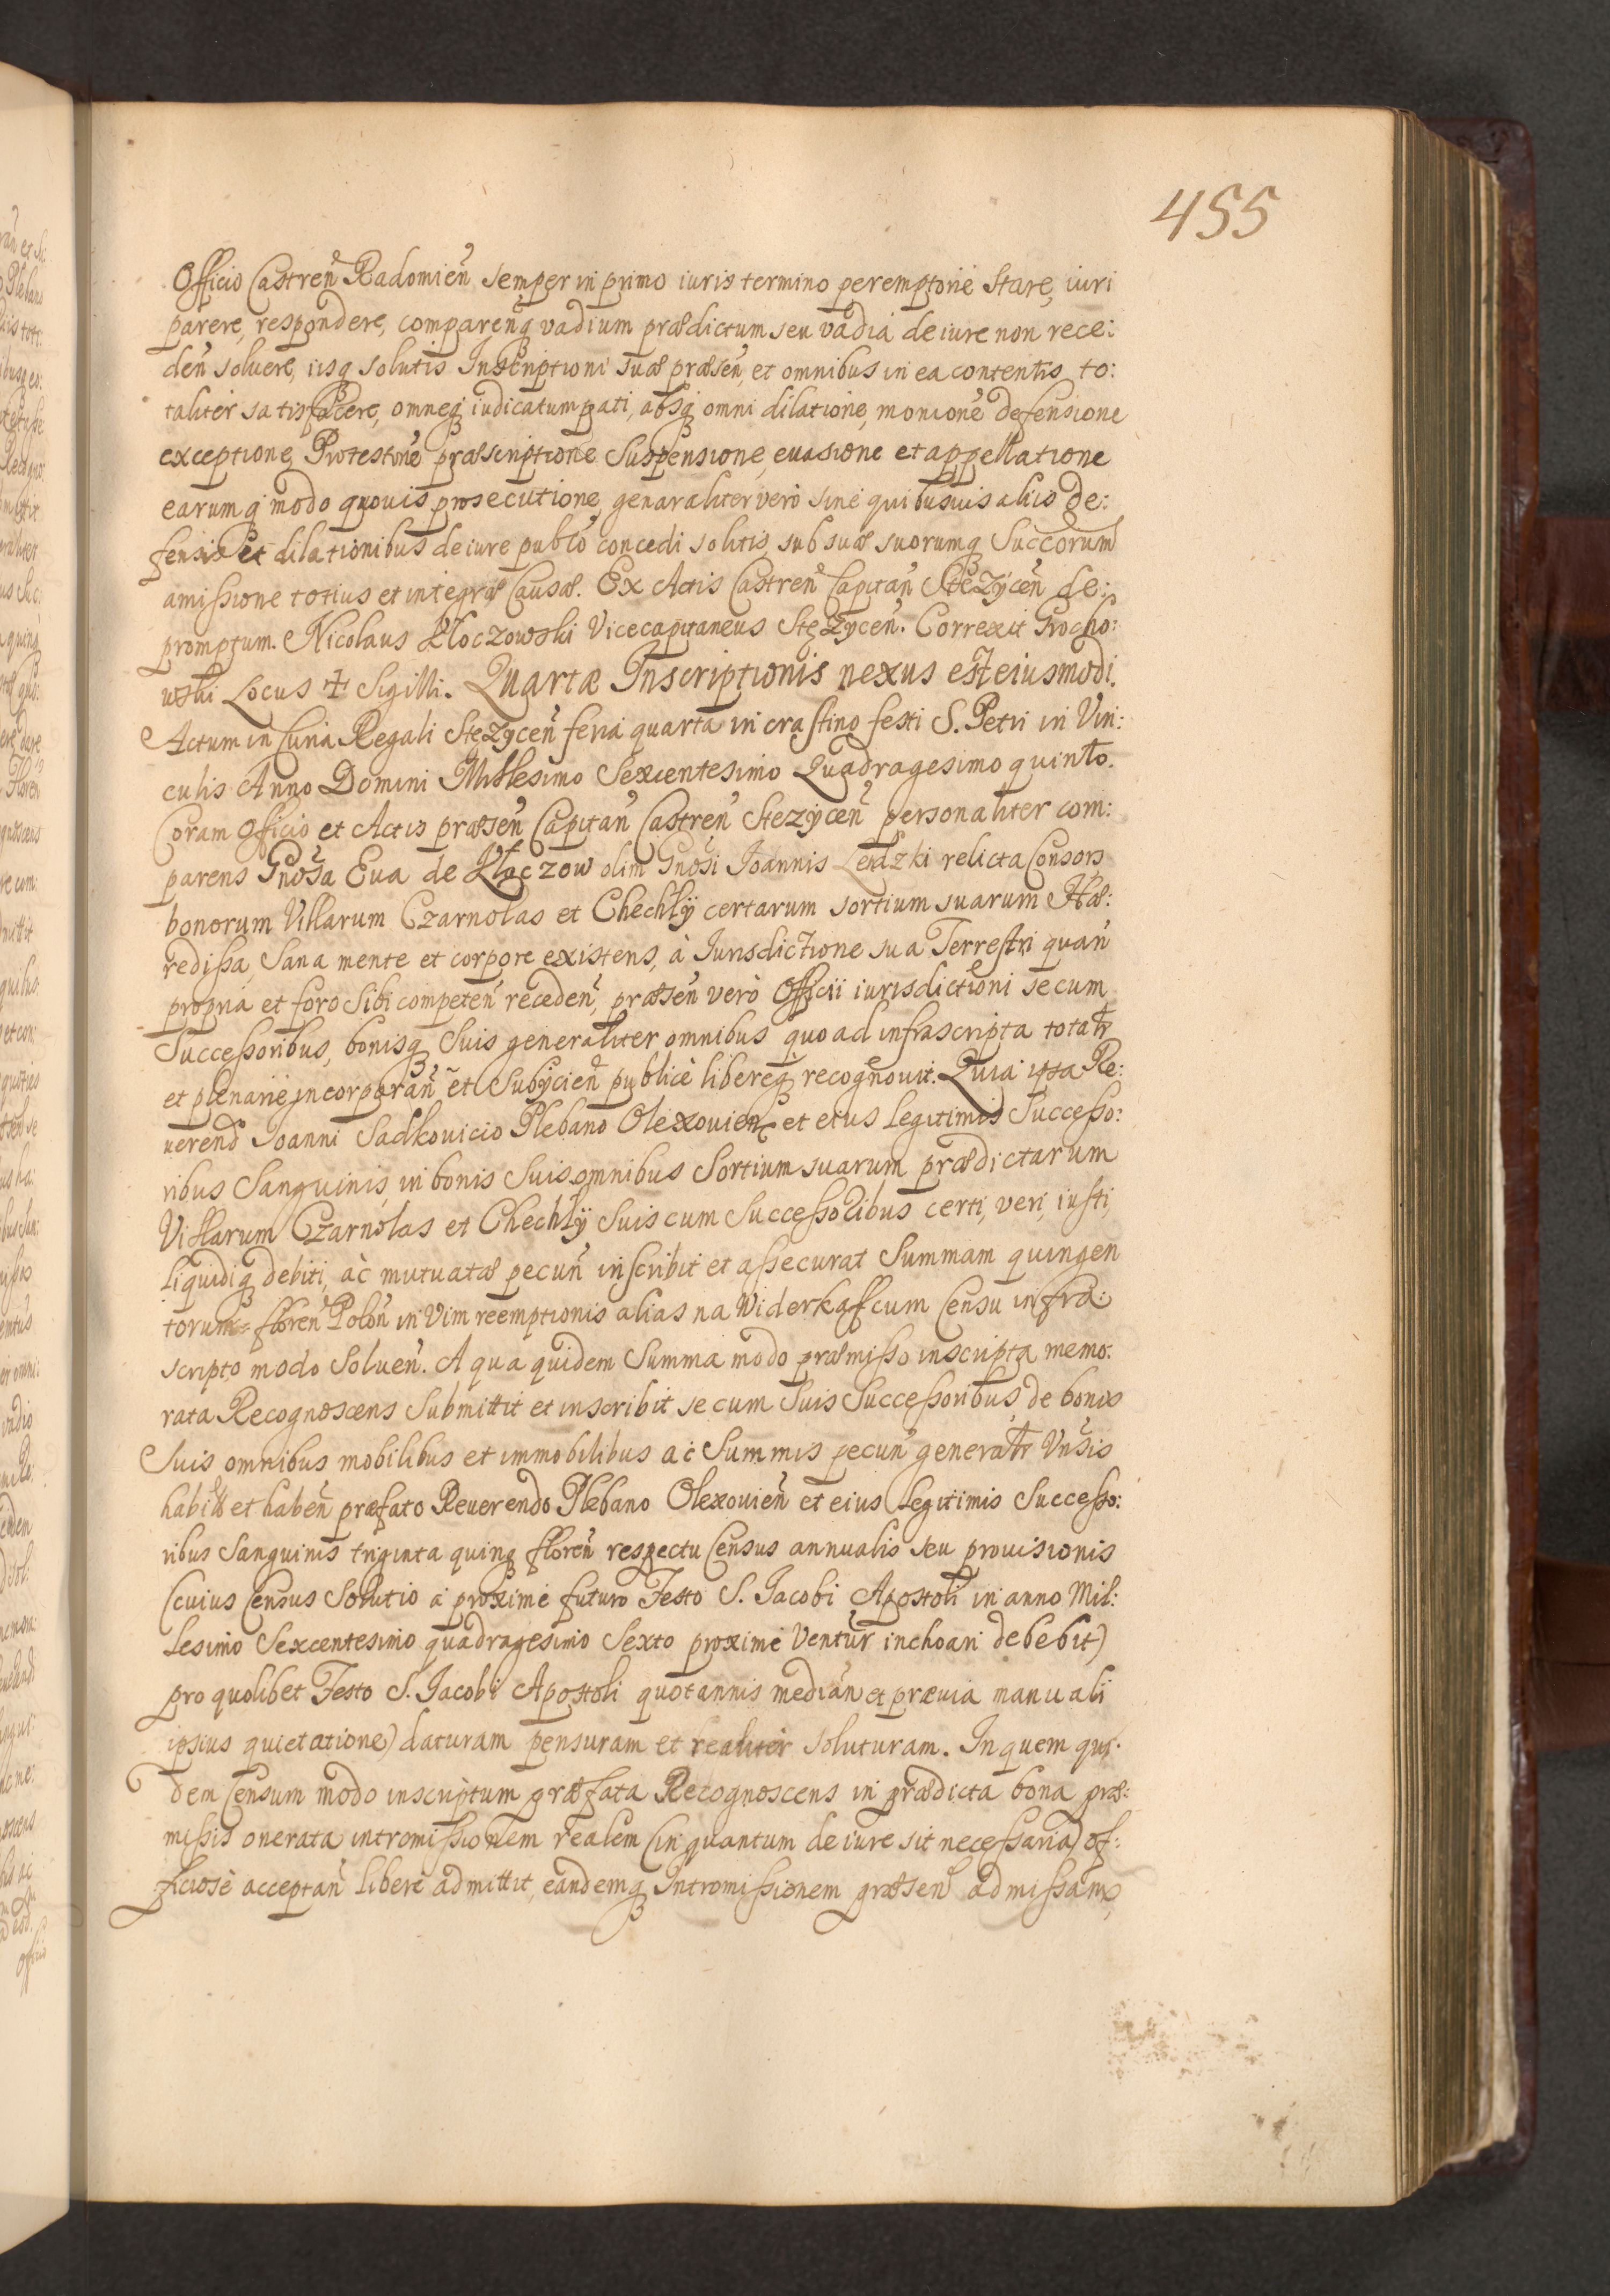 455
Officio Castreń Radomień semper in primo iuris termino peremptorie stare, iuri
parere, respondere, compareńq vadium prædictum seu vadia de iure non rece:
deń soluere, iisq solutis Inscriptioni suæ præseń, et omnibus in ea contentis to:
taliter satisfacere, omneq iudicatum pati, absq omni dilatione, monione defensione
exceptione Protestone præscriptione suspensione, euasione et appellatione
earumq modo quouis prosecutione, genaraliter verò sine quibusuis aliis de:
fensis et dilationibus de iure publo concedi solitis, sub suæ suorumq Succorum
amissione totius et integræ Causæ. Ex Actis Castreń Capitań Stezyceń de:
promptum. Nicolaus Kłoczowski Vicecapitaneus Stęzyceń. Correxit Grocho:
wski Locus ✝ Sigilli. Quartæ Inscriptionis nexus est eiusmodi.
Actum in Curia Regali Stęzyceń feria quarta in crastino festi S. Petri in Vin:
culis Anno Domini Millesimo Sexcentesimo Quadragesimo quinto.
Coram Officio et Actis præseń Capitań Castreń Stezyceń personaliter com:
parens Gnosa Eua de Kłoczow olim Gnosi Joannis Lendzki relicta Consors
bonorum Villarum Czarnolas et Chechły certarum sortium suarum Hæ:
redissa, Sana mente et corpore existens, à Jurisdictione sua Terrestri quań
propria et foro sibi competeń recedeń, præseń verò Officii iurisdictioni se cum
Successoribus, bonisq suis generaliter omnibus quo ad infrascripta totalr
et plenarie incorporań et subijcień publicè libereq recognouit. Quia ipsa Re:
uerend Joanni Sadkouicio Plebano Olexouień et eius legitimis Successo:
ribus Sanguinis, in bonis suis omnibus Sortium suarum prædictarum
Villarum Czarnolas et Chechły suis cum Successoribus certi, veri, iusti,
liquidiq debiti, ac mutuatæ pecuń inscribit et assecurat Summam quingen
torum floreń Poloń in Vim reemptionis alias na Widerkaf cum Censu infra:
scripto modo Soluen. A qua quidem Summa modo præmisso inscripta memo:
rata Recognoscens Submittit et inscribit se cum Suis Successoribus de bonis
Suis omnibus mobilibus et immobilibus ac Summis pecuń generalr Vnsis
habitis et habeń præfato Reuerendo Plebano Olexouień et eius legitimis Successo:
ribus Sanguinis triginta quinq floreń respectu Census annualis seu prouisionis
(cuius Census Solutio a proxime futuro Festo S. Jacobi Apostoli in anno Mil:
lesimo Sexcentesimo quadragesimo Sexto proxime Ventur inchoari debebit)
pro quolibet Festo S. Jacobi Apostoli quotannis mediań et præuia manuali
ipsius quietatione) daturam pensuram et realiter soluturam. In quem qui:
dem Censum modo inscriptum præfata Recognoscens in prædicta bona præ:
missis onerata intromissionem realem (in quantum de iure sit necessaria) of:
ficiosè acceptań liberè admittit, eandemq Intromissionem præsen admissam,